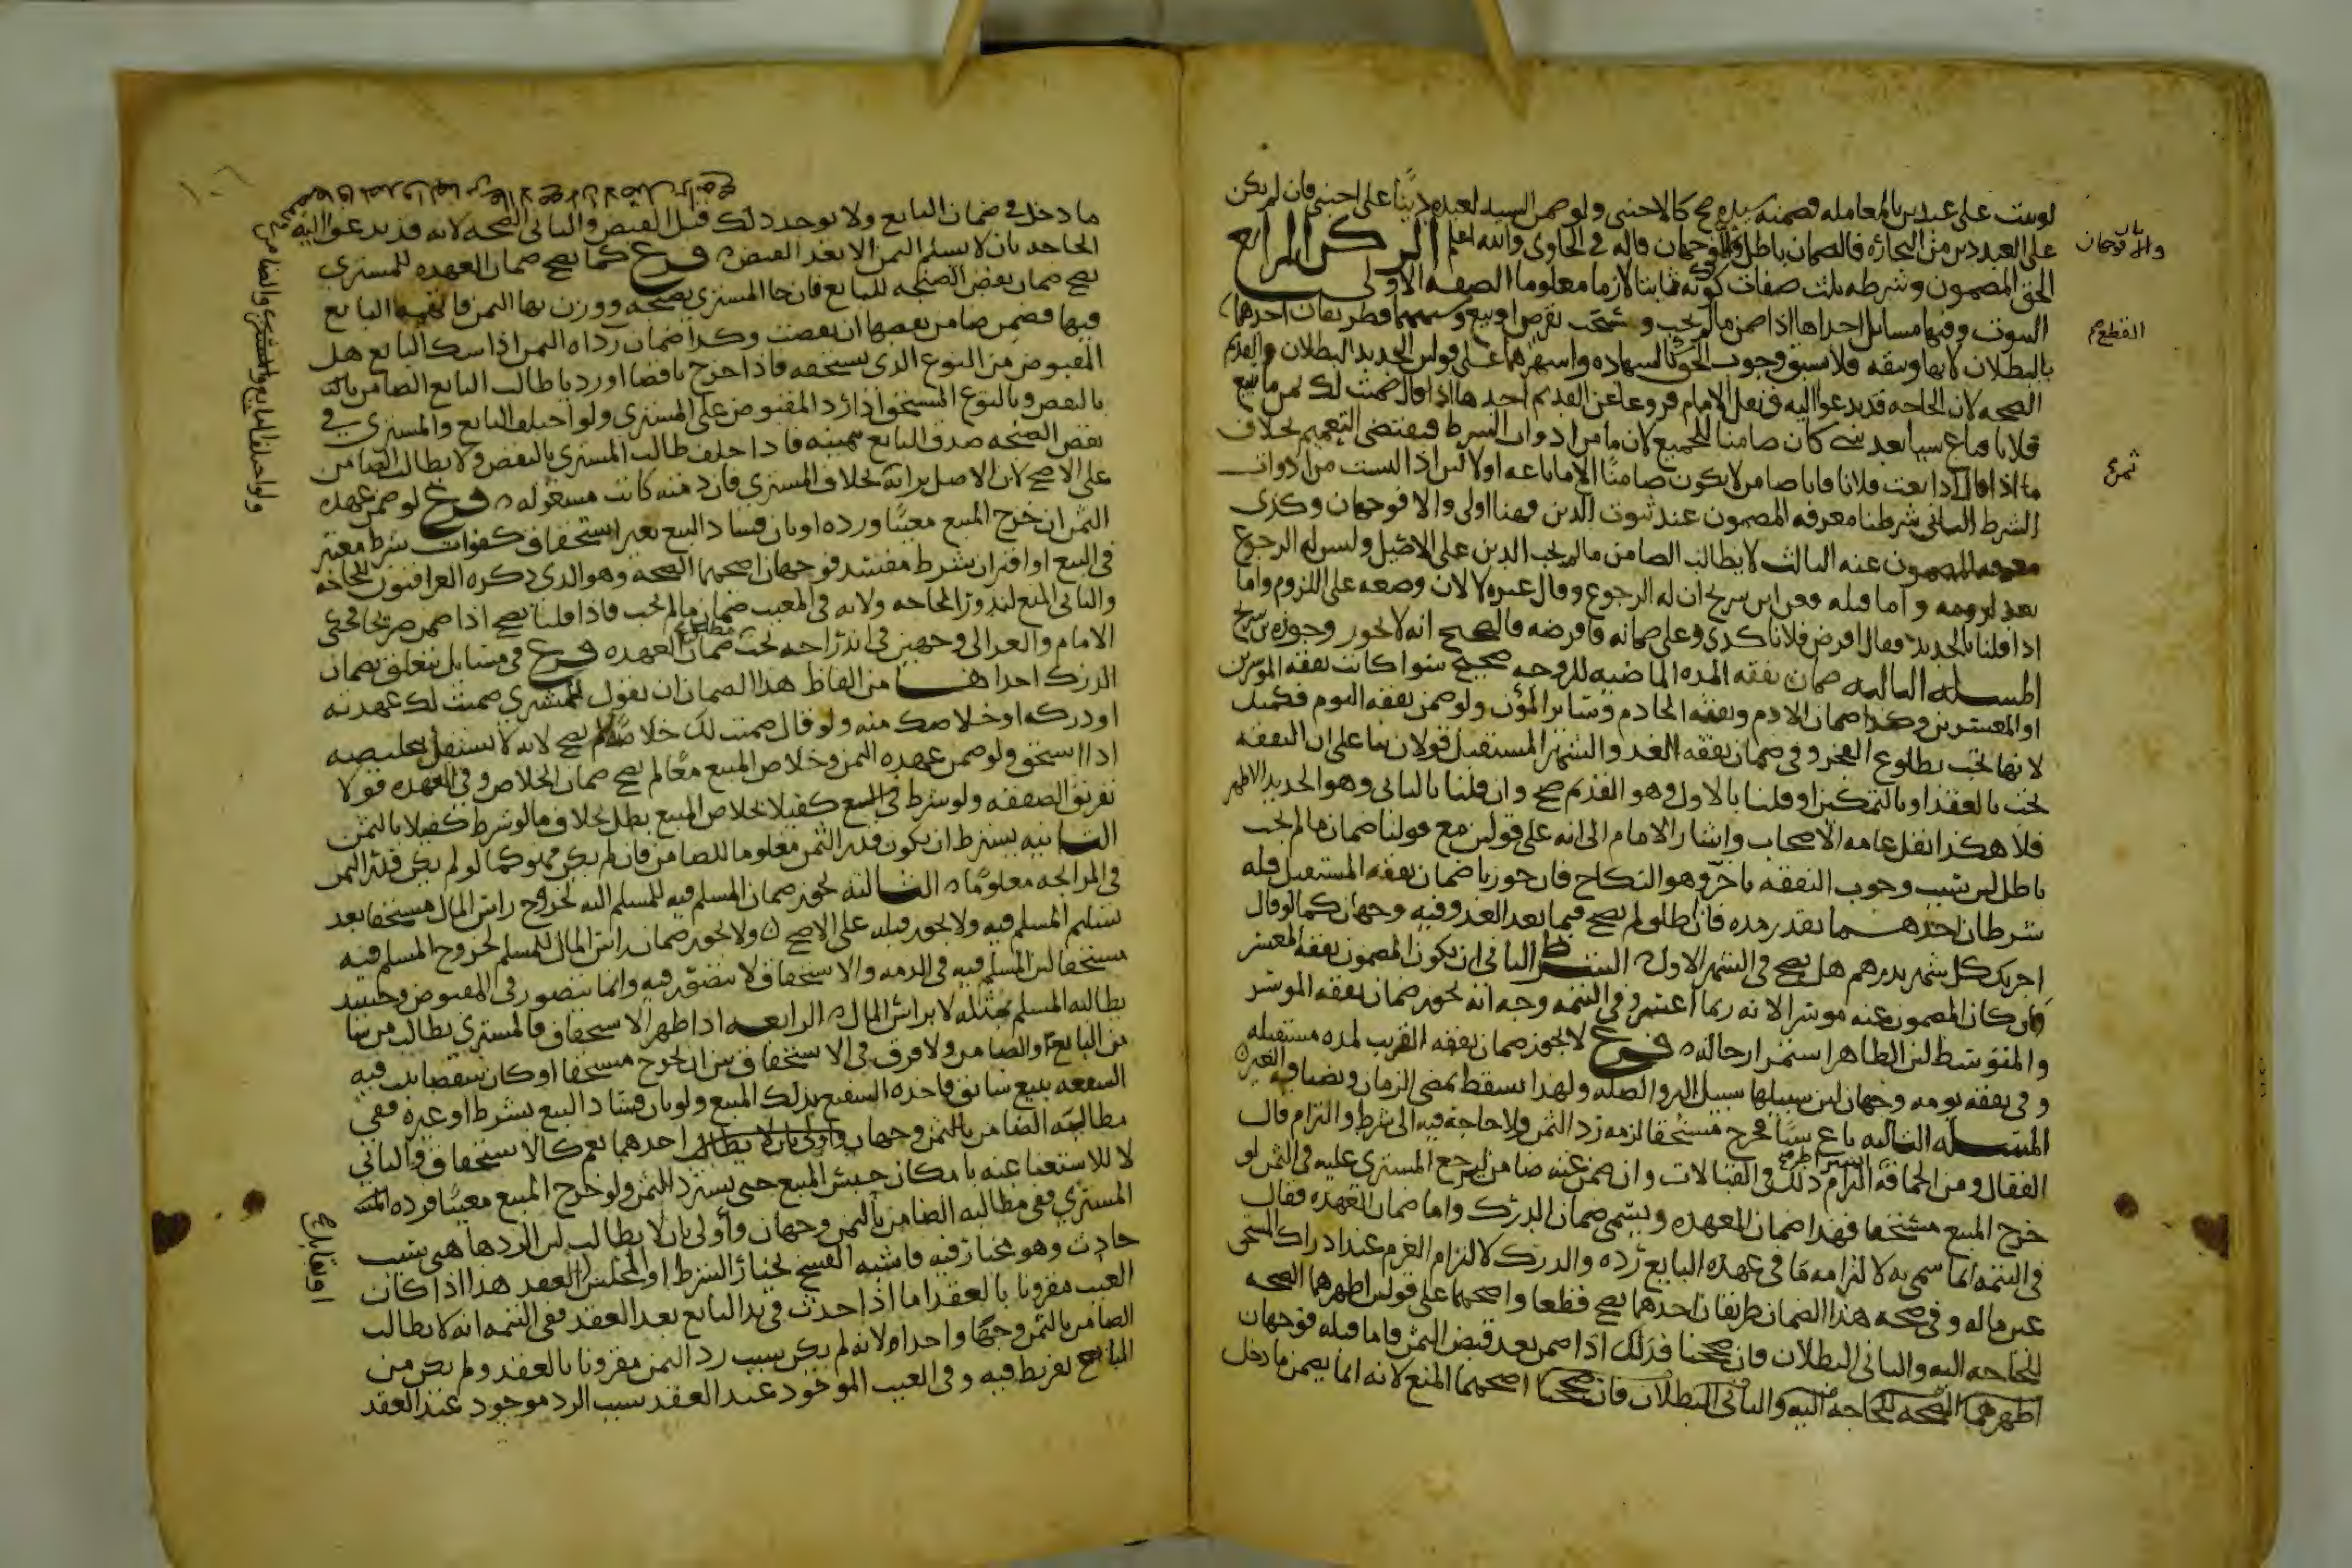 لو ثبت على عبد دين بالمعامله فضمنه سيده صح كالاجنبي ولو ضمن السيد لعبده دينًا على اجنبي فان لم يكن
على العبد دين من التجاره فالضمان باطل والا فوجهان قاله في الحاوي والله اعلم الركن الرابع
الحق المضمون وشرطه ثلث صفات كونه ثابتا لازما معلوما الصفه الاولى
الثبوت وفيها مسائل احداها اذا ضمن مالم يجب و بقرض او بيع وشبههما فطريقان احدهما
بالبطلان لانها وثيقه فلا تسبق وجوب الحق كالشهاده واشهرهما على قولين الجديد البطلان والقديم
الصحه لان الحاجه قد تدعو اليه ونقل الامام فروعا عن القديم احدها اذا قال ضمنت لك ثمن ما تبيع
فلانا فباع شيا بعد شي كان ضامنا للجميع لان ما من ادوات الشرط فيقتضي التعميم بخلاف
ما اذا قال اذا بعت فلانا فانا ضامن لا يكون ضامنًا الا ما باعه اولا لان اذا ليست من ادوات
الشرط الثاني شرطنا معرفه المضمون عند ثبوت الدين فهنا اولى والا فوجهان وكذي
معرفه المضمون عنه الثالث لا يطالب الضامن مالم يجب الدين على الاصيل وليس له الرجوع
بعد لزومه واما قبله فعن ابن سريج ان له الرجوع وقال غيره لا لان وضعه على اللزوم واما
اذا قلنا بالجديد فقال اقرض فلانا كذي وعلي ضمانه فاقرضه فالصحيح انه لا يجوز وجوزه بن سريج
المسله الثانيه ضمان نفقه المده الماضيه للزوجه صحيح سوا كانت نفقه الموسرين
او المعسرين وكذا ضمان الادم ونفقه الخادم وسائر المؤن ولو ضمن نفقه اليوم فكمثل
لانها تجب بطلوع الفجر وفي ضمان نفقه الغد والشهر المستقبل قولان بنا على ان النفقه
تجب بالعقد او بالتمكين ان قلنا بالاول وهو القديم صح وان قلنا بالثاني وهو الجديد الاظهر
فلا هكذا نقل عامه الاصحاب واشار الامام الى انه على قولين مع قولنا ضمان مالم يجب
باطل لان سبب وجوب النفقه ناجز وهو النكاح فان جوزنا ضمان نفقه المستقبل فله
شرطان احدهما بقدر مده فان اطلق لم يصح فيما بعد الغد وفيه وجهان كما لو قال
اجرتك كل شهر بدرهم هل يصح في الشهر الاول الشرط الثاني ان يكون المضمون نفقه المعسر
وان كان المضمون عنه موسرا لانه ربما اعسر وفي التتمه وجه انه يجوز ضمان نفقه الموسر
والمتوسط لان الظاهر استمرار حاله فرع لا يجوز ضمان نفقه القريب لمده مستقبله
وفي نفقه يومه وجهان لان سبيلها سبيل البر والصله ولهذا تسقط بمضي الزمان وبضيافه الغير
المسله الثالثه باع شيًا فخرج مستحقا لزمه رد الثمن ولا حاجه فيه الى شرط والتزام قال
القفال ومن الحماقه التزام ذلك في القبالات وان ضمن عنه ضامن ليرجع المشتري عليه في الثمن لو
خرج المبيع مستحقا فهذا ضمان العهده ويسمى ضمان الدرك واما ضمان العهده فقال
في التتمه انما سمي به لالتزامه ما في عهده البايع رده والدرك لالتزام الغرم عند ادراك المستحق
عين ماله وفي صحه هذا الضمان طريقان احدهما يصح قطعا واصحهما على قولين اظهرهما الصحه
للحاجه اليه والثاني البطلان فان صححنا فذلك اذا ضمن بعد قبض الثمن فاما قبله فوجهان
اظهرهما الصحه للحاجه اليه والثاني البطلان فان صححنا اصحهما المنع لانه انما يضمن ما دخل
والا فوجهان
القطع
ما دخل في ضمان البايع ولا يوجد ذلك قبل القبض والثاني الصحه لانه قد تدعو اليه
الحاجه بان لا يسلم الثمن الا بعد القبض فرع كما يصح ضمان العهده للمشتري
يصح ضمان نقص الصنجه للبايع فان جا المشتري بصنجه ووزن بها الثمن فاتهمه البايع
فيها فضمن ضامن نقصها ان نقصت وكذا ضمان رداه الثمن اذا شك البايع هل
المقبوض من النوع الذي يستحقه فاذا خرج ناقصا او رديا طالب البايع الضامن
بالنقص وبالنوع المستحق اذا رد المقبوض على المشتري ولو اختلف البايع والمشتري في
نقص الصنجه صدق البايع بيمينه فاذا حلف طالب المشتري بالنقص ولا يطالب الضامن
على الاصح لان الاصل براته بخلاف المشتري فان ذمته كانت مشغوله فرع لو ضمن عهده
الثمن ان خرج المبيع معيبًا ورده او بان فساد البيع بغير استحقاق كفوات شرط معتبر
في البيع او اقتران شرط مفسد فوجهان اصحهما الصحه وهو الذي ذكره العراقيون للحاجه
والثاني المنع لندور الحاجه ولانه في المعيب ضمان مالم يجب فاذا قلنا يصح اذا ضمن صريحا فحكى
الامام والغزالي وجهين في اندراجه تحت مطلق ضمان العهده فرع في مسائل تتعلق بضمان
الدرك احداها من الفاظ هذا الضمان ان يقول للمشتري ضمنت لك عهدته
او دركه او خلاصك منه ولو قال ضمنت لك خلاصه لم يصح لانه لا يستقل بتخليصه
اذا استحق ولو ضمن عهده الثمن وخلاص المبيع معًا لم يصح ضمان الخلاص وفي العهده قولا
تفريق الصفقه ولو شرط في البيع كفيلا بخلاص المبيع بطل بخلاف مالو شرط كفيلا بالثمن
الثانيه يشترط ان يكون قدر الثمن معلوما للضامن فان لم يكن فهو كما لو لم يكن قدر الثمن
في المرابحه معلومًا الثالثه يجوز ضمان المسلم فيه للمسلم اليه لخروج راس المال مستحقا بعد
تسليم المسلم فيه ولا يجوز قبله على الاصح ولا يجوز ضمان راس المال للمسلم لخروج المسلم فيه
مستحقا لان المسلم فيه في الذمه والاستحقاق لا يتصور فيه وانما يتصور في المقبوض وحينيذ
يطالب المسلم بمثله لا براس المال الرابعه اذا ظهر الاستحقاق فالمشتري يطالب من شا
من البايع والضامن ولا فرق في الاستحقاق بين ان يخرج مستحقا او كان شقصا ثبت فيه
الشفعه ببيع سابق فاخذه الشفيع بذلك المبيع ولو بان فساد البيع بشرط او غيره ففي
مطالبته الضامن بالثمن وجهان احدهما نعم كالاستحقاق والثاني
لا للاستغنا عنه بامكان حبس المبيع حتى يسترد الثمن ولو خرج المبيع معيبًا فرده
المشتري ففي مطالبه الضامن بالثمن وجهان واولى بان لا يطالب لان الرد هاهنى بسبب
حادث وهو مختار فيه فاشبه الفسخ بخيار الشرط او المجلس العقد هذا اذا كان
العيب مقرونا بالعقد اما اذا حدث في يد البايع بعد العقد ففي التتمه انه لا يطالب
الضامن بالثمن وجهًا واحدا لانه لم يكن سبب رد الثمن مقرونا بالعقد ولم يكن من
البايع تفريط فيه وفي العيب الموجود عند العقد سبب الرد موجود عند العقد
ولو اختلف البايع والمشتري والضامن